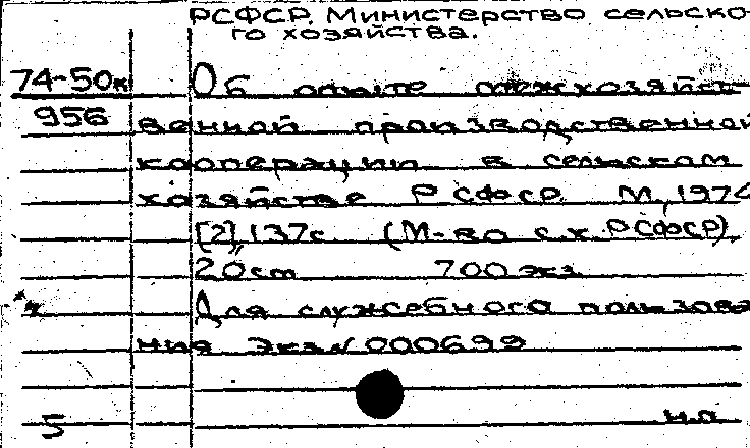 РСФСР. Министерство сельско-
го хозяйства.
74-50к Об опыте межхозяйст-
956 венной производственной
кооперации в сельском
хозяйстве РСФСР. М., 1974
[2], 137с. (М-во с.х. РСФСР).
20 см 700 экз.
Для служебного пользова
ния Экз.N 000699
5 н.п